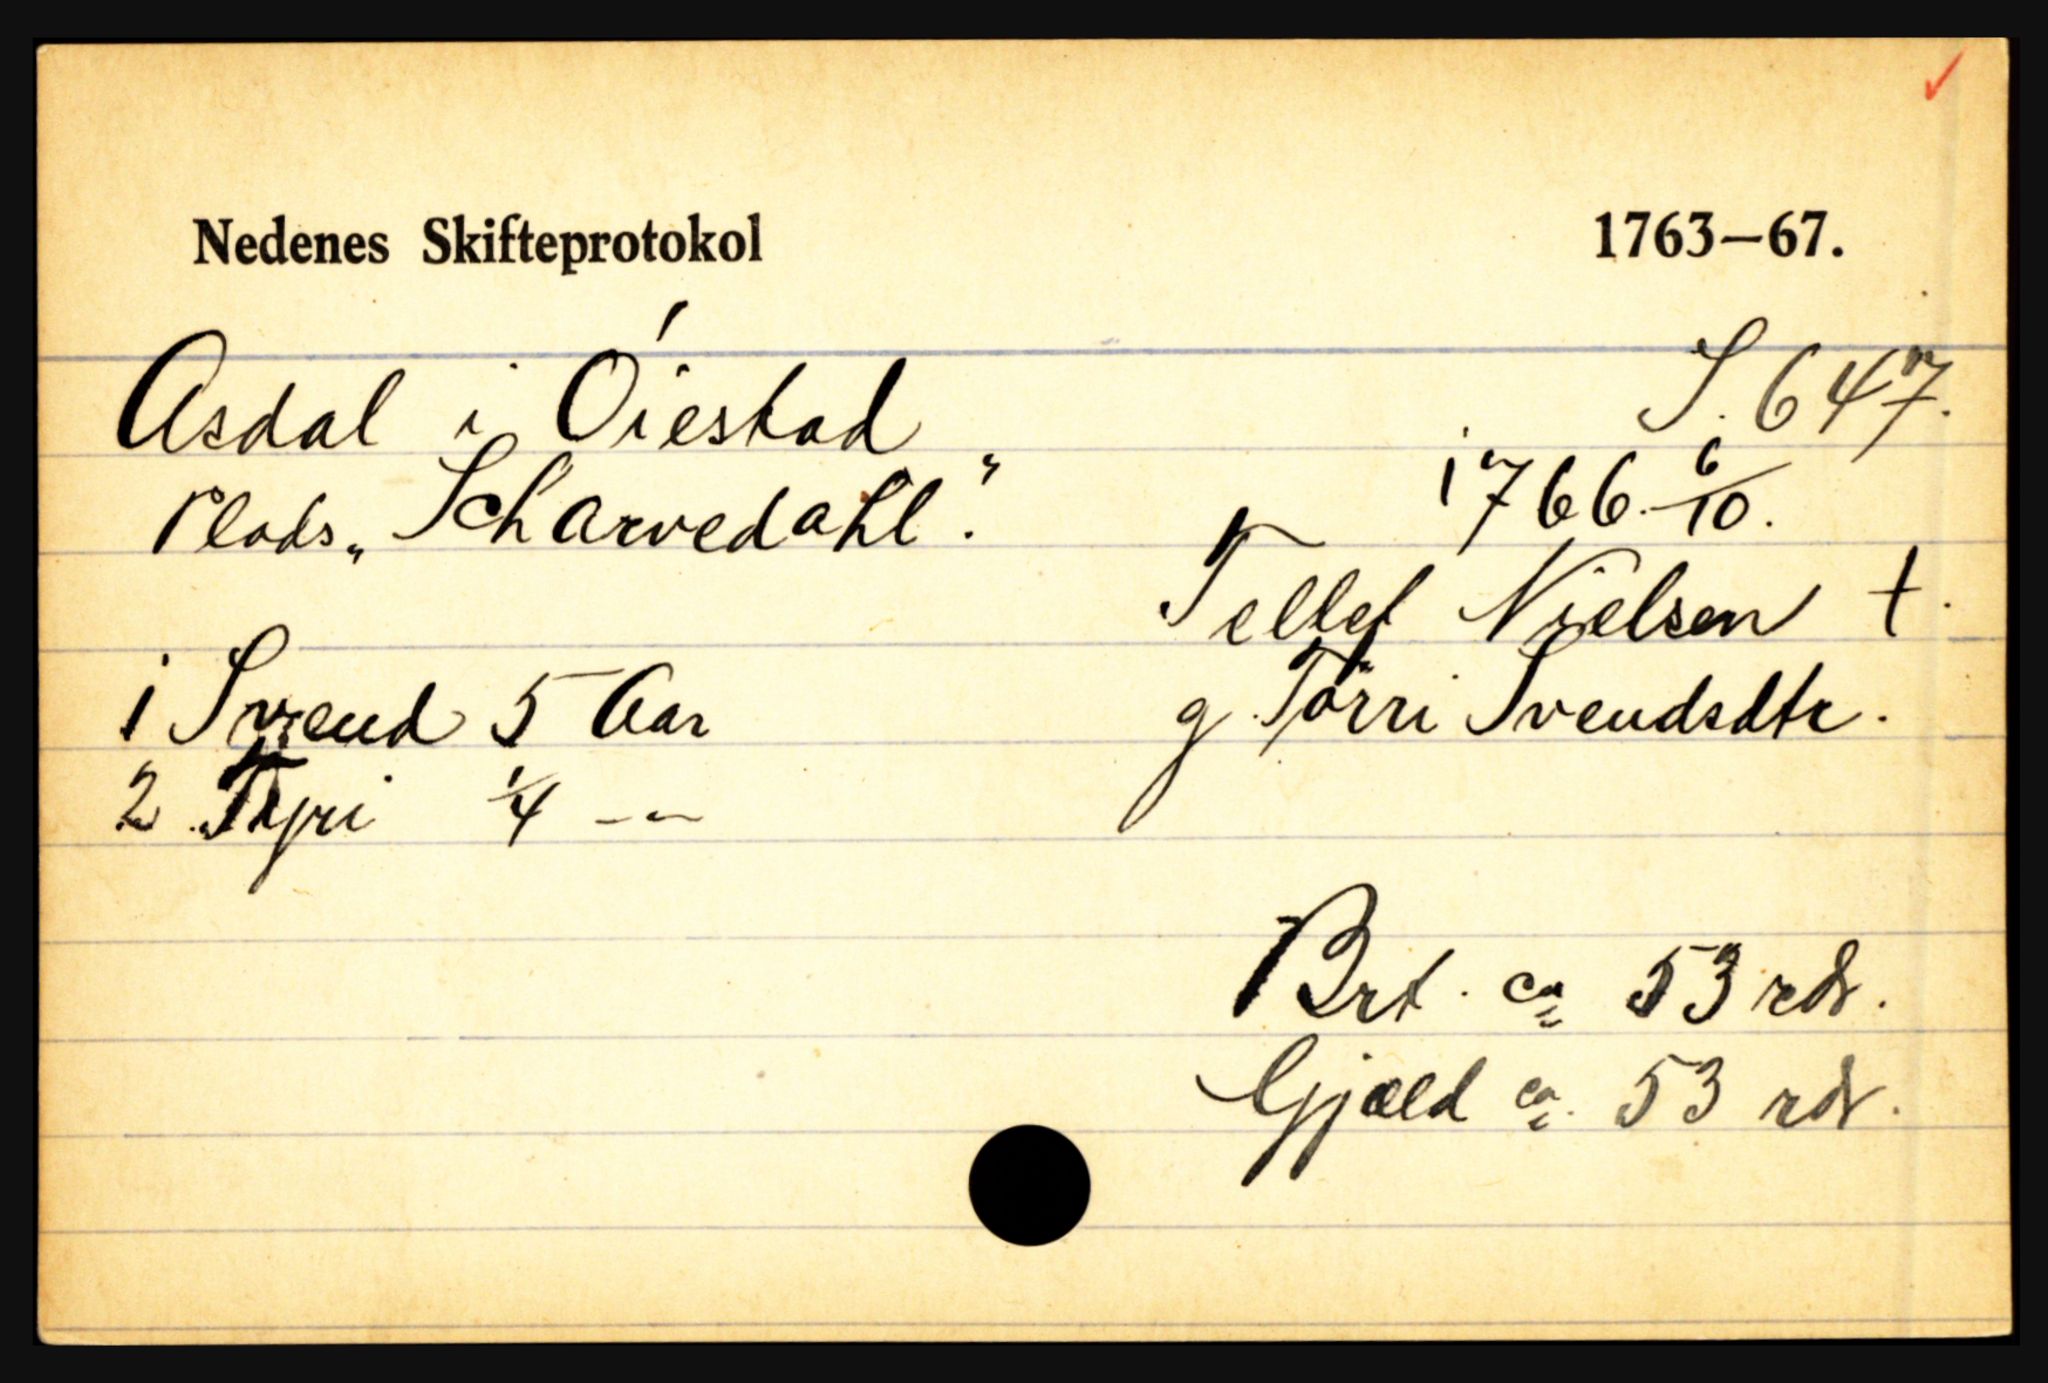 Nedenes Skifteprotokol 1763—67.
Asdal i Óiestad S. 647.
Plads „Scharvedahl". 1766. 6/10.
Tellef Nielsen †.
1 Svend 5 Aar g. Törri Svendsdtr.
2 Tyri ¼ —
Brt. ca 53 rdr.
Gjæld ca. 53 rdr.